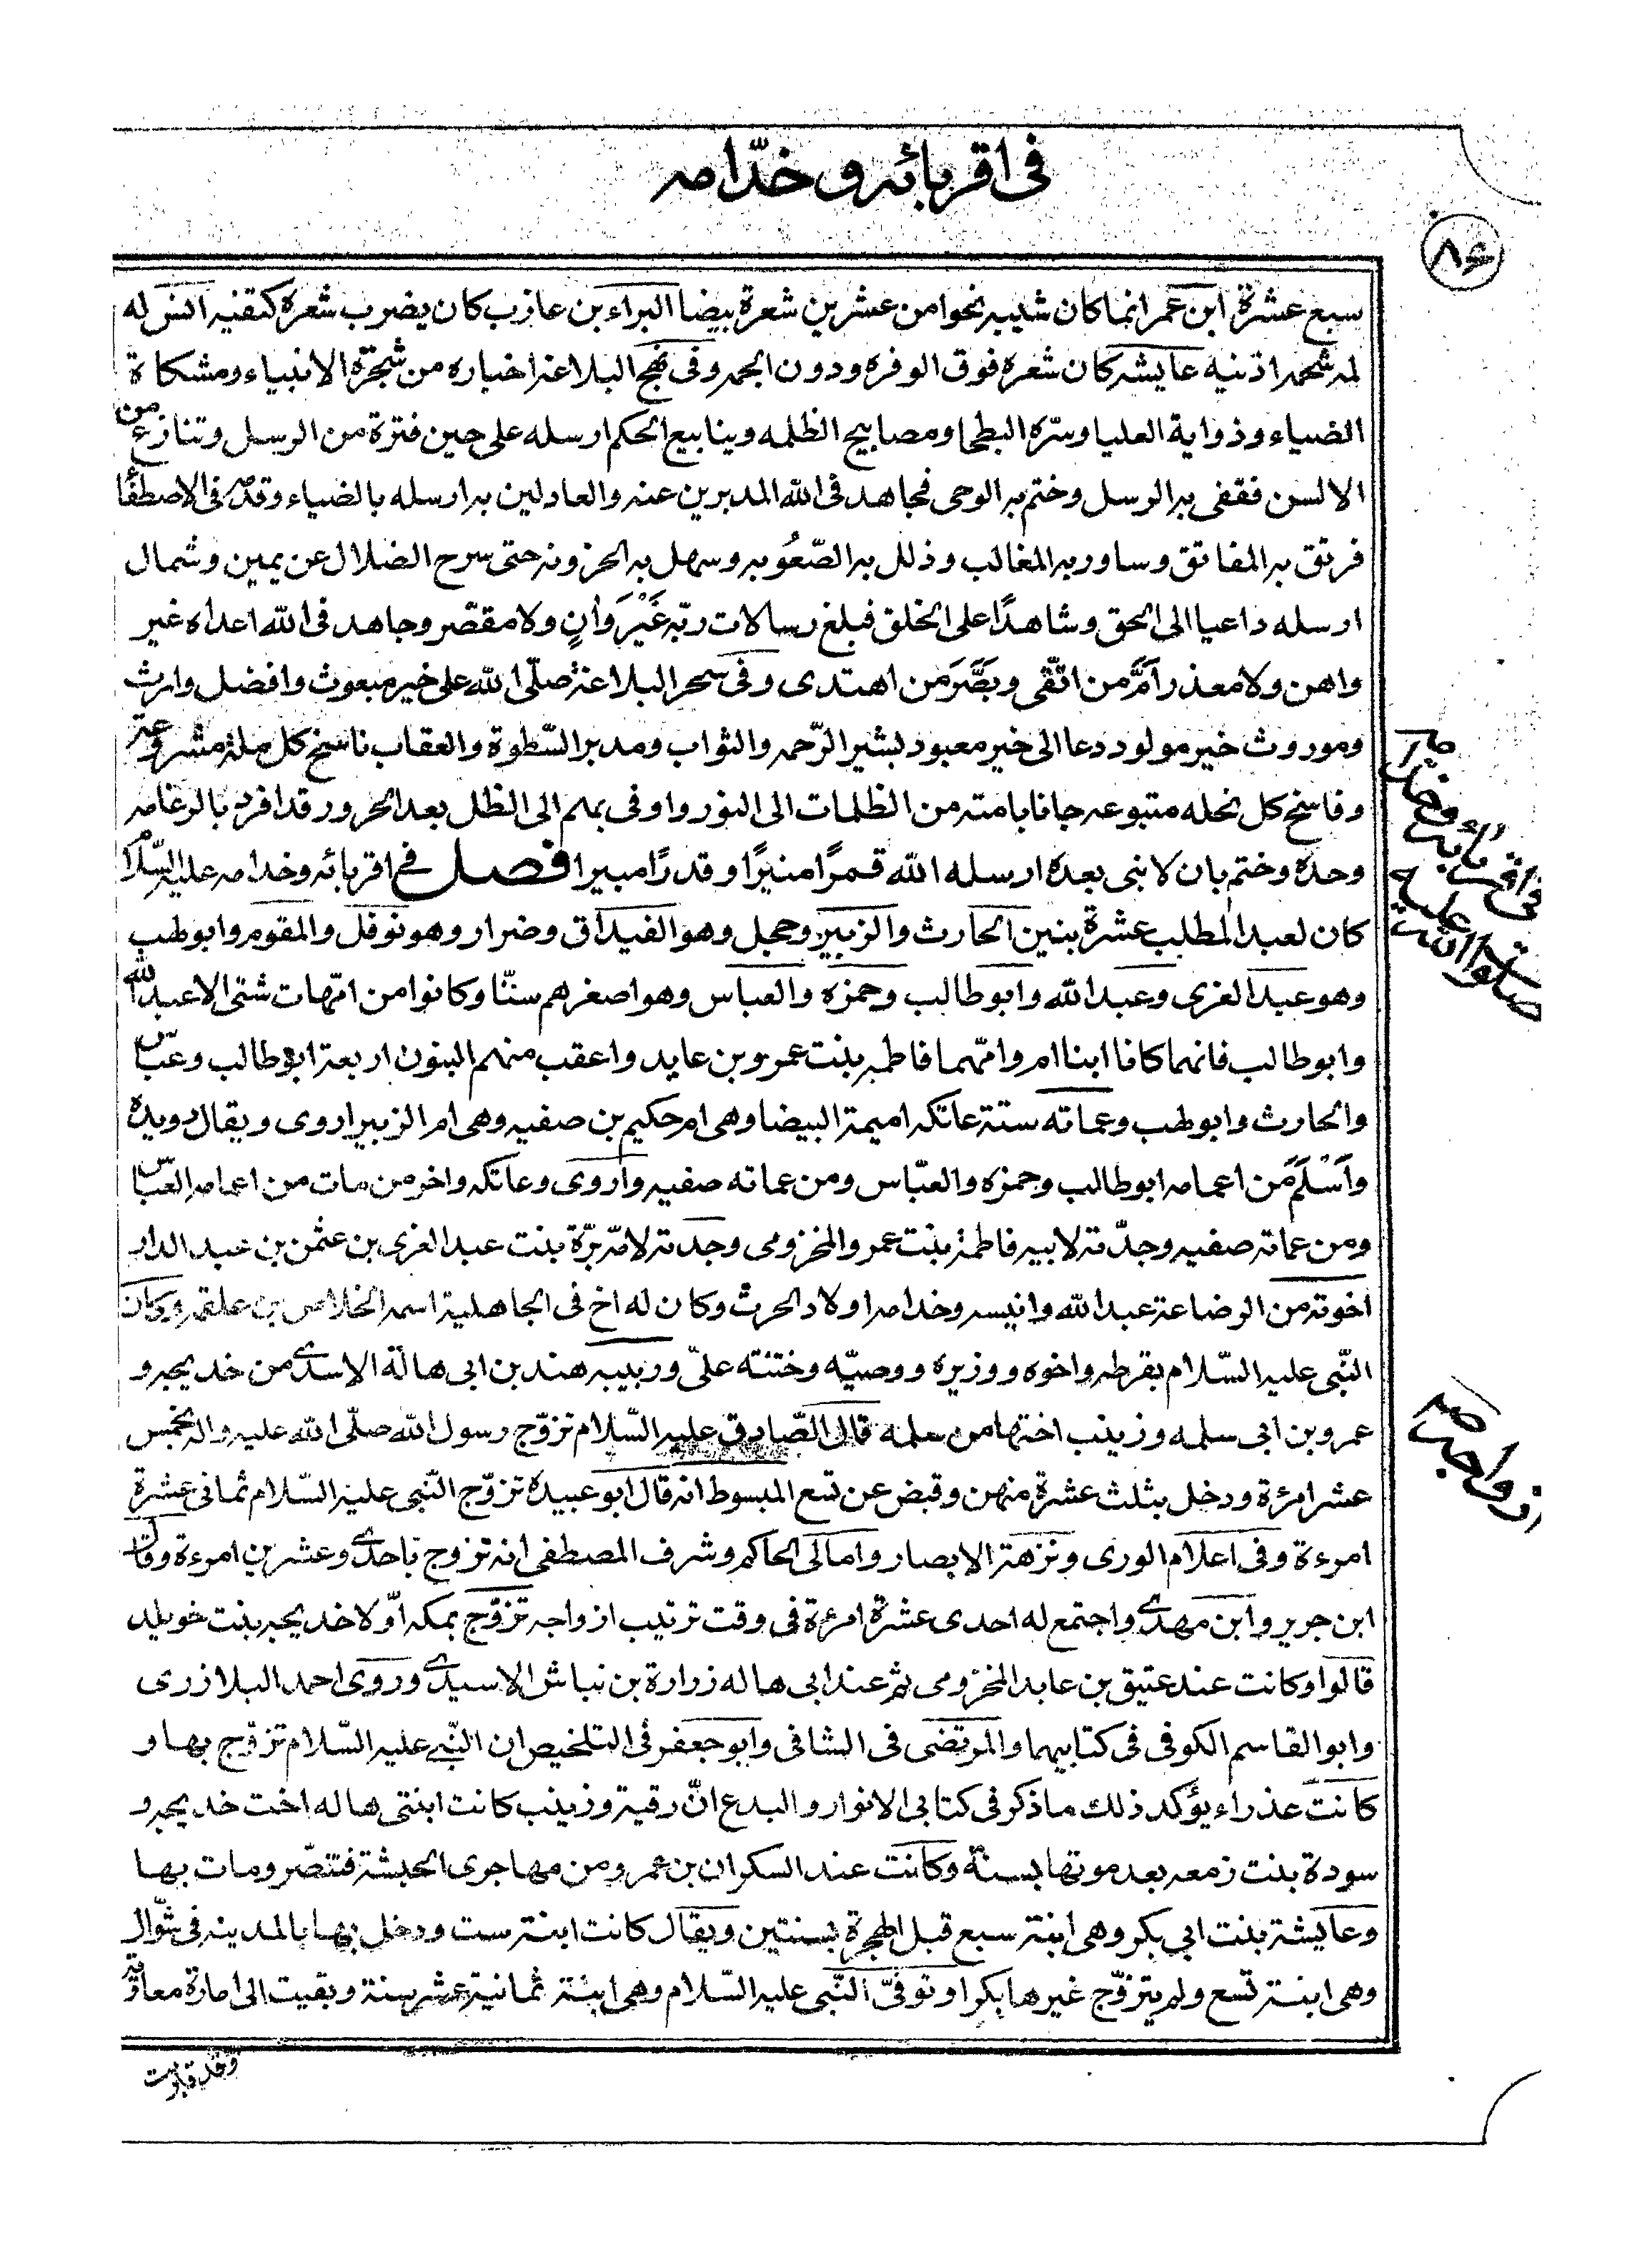 فی اقربائه و خدّامه
٨٤
سبع عشرة ابن عمر انما كان شيبه نحوا من عشرين شعرة بيضا البراء بن عازب كان يضرب شعره كتفيه انس له
لمه شحمه اذنيه عايشه كان شعره فوق الوفره ودون الجمه وفى نهج البلاغه اختاره من شجرة الانبياء ومشكاة
الضياء وذوابة العليا وسرّه البطحا ومصابيح الظلمه وينابيع الحكم ارسله على حين فترة من الرسل وتنازع من
الالسن فقفى به الرسل وختم به الوحى فجاهد فى الله المدبرين عنه والعادلين به ارسله بالضياء وقدّمه فى الاصطفا
فرتق به المفاتق وساور به المغالب وذلل به الصّعُوبه وسهل به الحزونه حتى سرح الضلال عن يمين وشمال
ارسله داعيا الى الحق وشاهدًا على الخلق فبلغ رسالات ربّه غَيْرَ وَانٍ ولا مقصّر وجاهد فى الله اعداه غير
واهن ولا معذر اَمَّ من اتّقى وبَصَّرَ من اهتدى وفى سحر البلاغة صلّى الله على خير مبعوث وافضل وارث
وموروث خير مولود دعا الى خير معبود بشير الرّحمه والثواب ومدبر السّطوة والعقاب ناسخ كل ملة مشروعه
وفاسخ كل نحله متبوعه جانا بامته من الظلمات الى النور واوفى بهم الى الظل بعد الحرور قد افرد بالزعامه
وحده وختم بان لا نبى بعده ارسله الله قمرًا منيرًا وقدرًا مبيرا فصل فى اقربائه وخدامه عليه السّلام
كان لعبد المطلب عشرة بنين الحارث والزبير وحجل وهو الغيداق وضرار وهو نوفل والمقوم وابو لهب
وهو عبد العزى وعبد الله وابو طالب وحمزه والعباس وهو اصغرهم سنّا وكانوا من امّهات شتى الا عبد الله
وابو طالب فانهما كانا ابنا ام وامّهما فاطمه بنت عمرو بن عايد واعقب منهم البنون اربعة ابو طالب وعبّاس
والحارث وابو لهب وعماته ستة عاتكه اميمة البيضا وهى ام حكيم بن صفيه وهى ام الزبير اروى ويقال وبدة
وَاَسْلَمَ من اعمامه ابو طالب وحمزه والعبّاس ومن عماته صفيه وأروى وعاتكه واخر من مات من اعمامه العبّاس
ومن عماته صفيه وجدّته لابيه فاطمة بنت عمرو المخزومى وجدته لامّه برّة بنت عبد العزى بن عثمن بن عبد الدار
اخوته من الرضاعة عبد الله وانيسه وخدامه اولاد الحرث وكان له اخ فى الجاهلية اسمه الخلاص بن علقمه وكان
النّبى عليه السّلام يقرظه واخوه ووزيره ووصيّه وختنه علىّ وربيبه هند بن ابى هالة الاسدى من خديجه و
عمرو بن ابى سلمه وزينب اختها من سلمه قال الصّادق عليه السّلام تزوّج رسول الله صلّى الله عليه واله بخمس
عشر امرئة ودخل بثلث عشرة منهن وقبض عن تسع المبسوط انه قال ابو عبيده تزوّج النّبى عليه السّلام ثمانى عشرة
امرءة وفى اعلام الورى ونزهة الابصار وامالى الحاكم وشرف المصطفى انه تزوج باحدى وعشرين امرءة وقال
ابن جرير وابن مهدى واجتمع له احدى عشرة امرئة فى وقت ترتيب ازواجه تزوّج بمكه اوّلا خديجه بنت خويلد
قالوا وكانت عند عتيق بن عايد المخزومى ثم عند ابى هاله زرارة بن نباش الاسيدى وروى احمد البلاذرى
وابو القاسم الكوفى فى كتابيهما والمرتضى فى الشافى وابو جعفر فى التلخيص ان النّبى عليه السّلام تزوّج بها و
كانت عذراء يؤكد ذلك ما ذكر فى كتابى الانوار والبدع انّ رقية وزينب كانت ابنتى هاله اخت خديجه و
سودة بنت زمعه بعد موتها بسنة وكانت عند السكران بن عمرو من مهاجرى الحبشة فتنصّر ومات بها
وعايشة بنت ابى بكر وهى ابنة سبع قبل الهجرة بسنتين ويقال كانت ابنة ست ودخل بها بالمدينه فى شوّال
وهى ابنة تسع ولم يتزوّج غيرها بكرا وتوفىّ النّبى عليه السّلام وهى ابنة ثمانية عشر سنة وبقيت الى امارة معاويه
وقد قاربت
فى اقربائه وخدامه
صلوات الله عليه
ازواجه ص